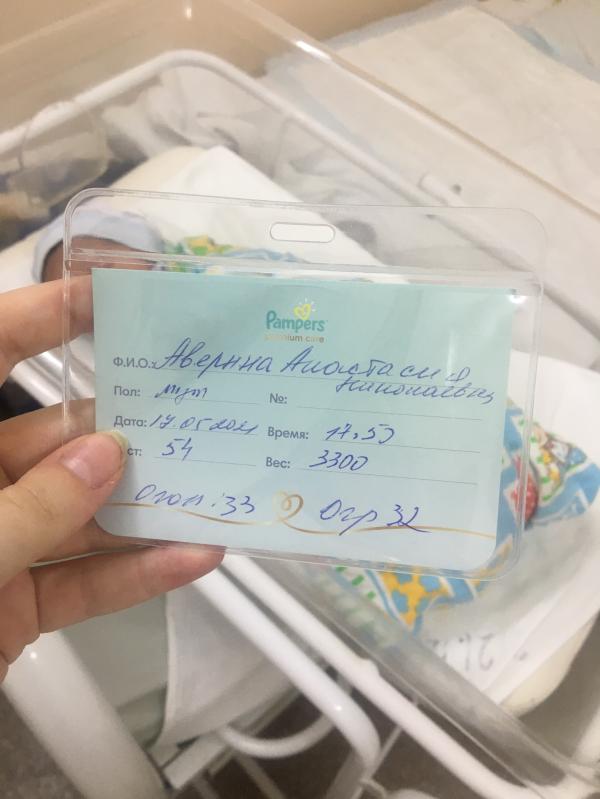 Pampers
premium care
Ф.И.О.: Аверина Анастасия
Николаевна
Пол: муж №:
Дата: 17.05.2021 Время: 17.50
ст: 54 Вес: 3300
Огол: 33 Огр 32